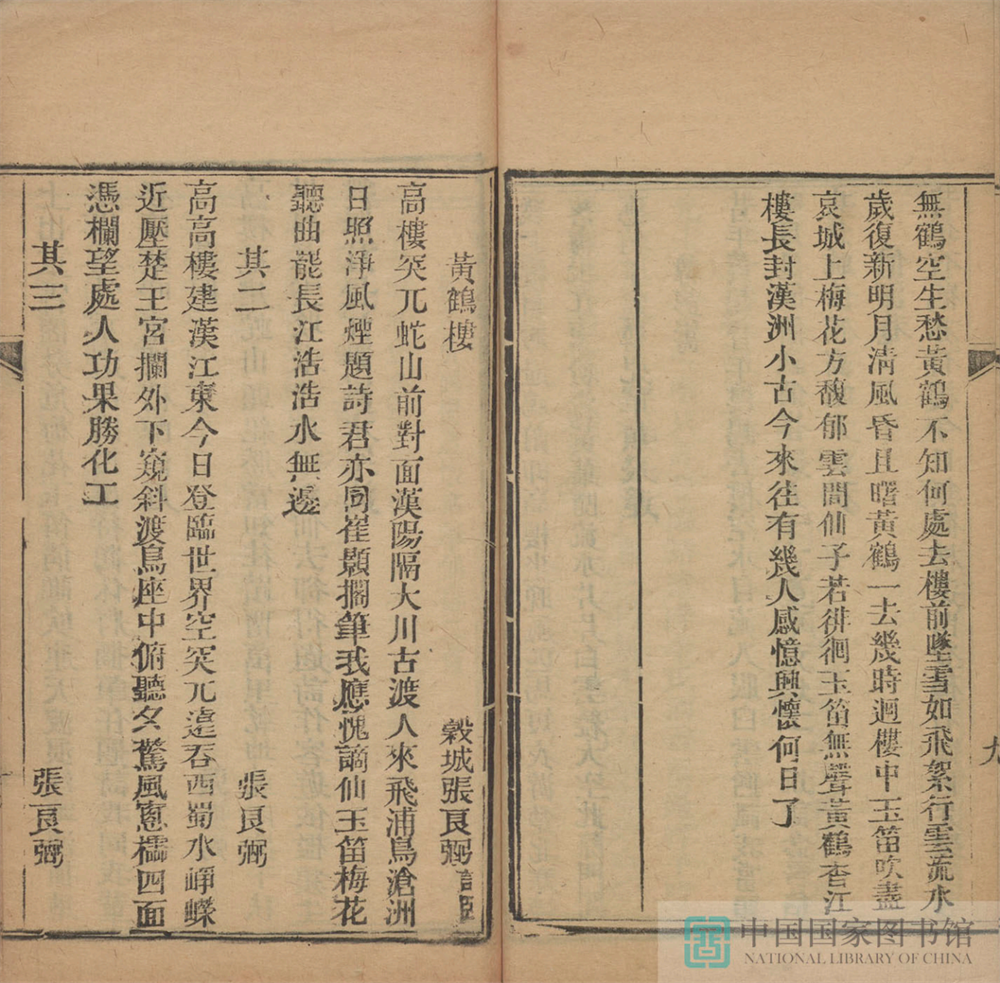 無鶴空生愁黃鶴不知何處去樓前墜雪如飛絮行雲流水
歲復新明月清風昏且曙黃鶴一去幾時迴樓中玉笛吹盡
哀城上梅花方馥郁雲間仙子若徘徊玉笛無聲黃鶴杳江
樓長封漢洲小古今來往有幾人感憶興懷何日了
九
黃鶴樓
穀城張良弼
高樓突兀蛇山前對面漢陽隔大川古渡人來飛浦鳥滄洲
日照淨風煙題詩君亦同崔顥擱筆我應愧謫仙玉笛梅花
聽曲罷長江浩浩水無邊
其二
張良弼
高高樓建漢江東今日登臨世界空突兀遠吞西蜀水崢嶸
近壓楚王宮攔外下窺斜渡鳥座中俯聽夕驚風窻櫺四面
憑欄望處人功果勝化工
其三
張良弼
中国国家图书馆
NATIONAL LIBRARY OF CHINA